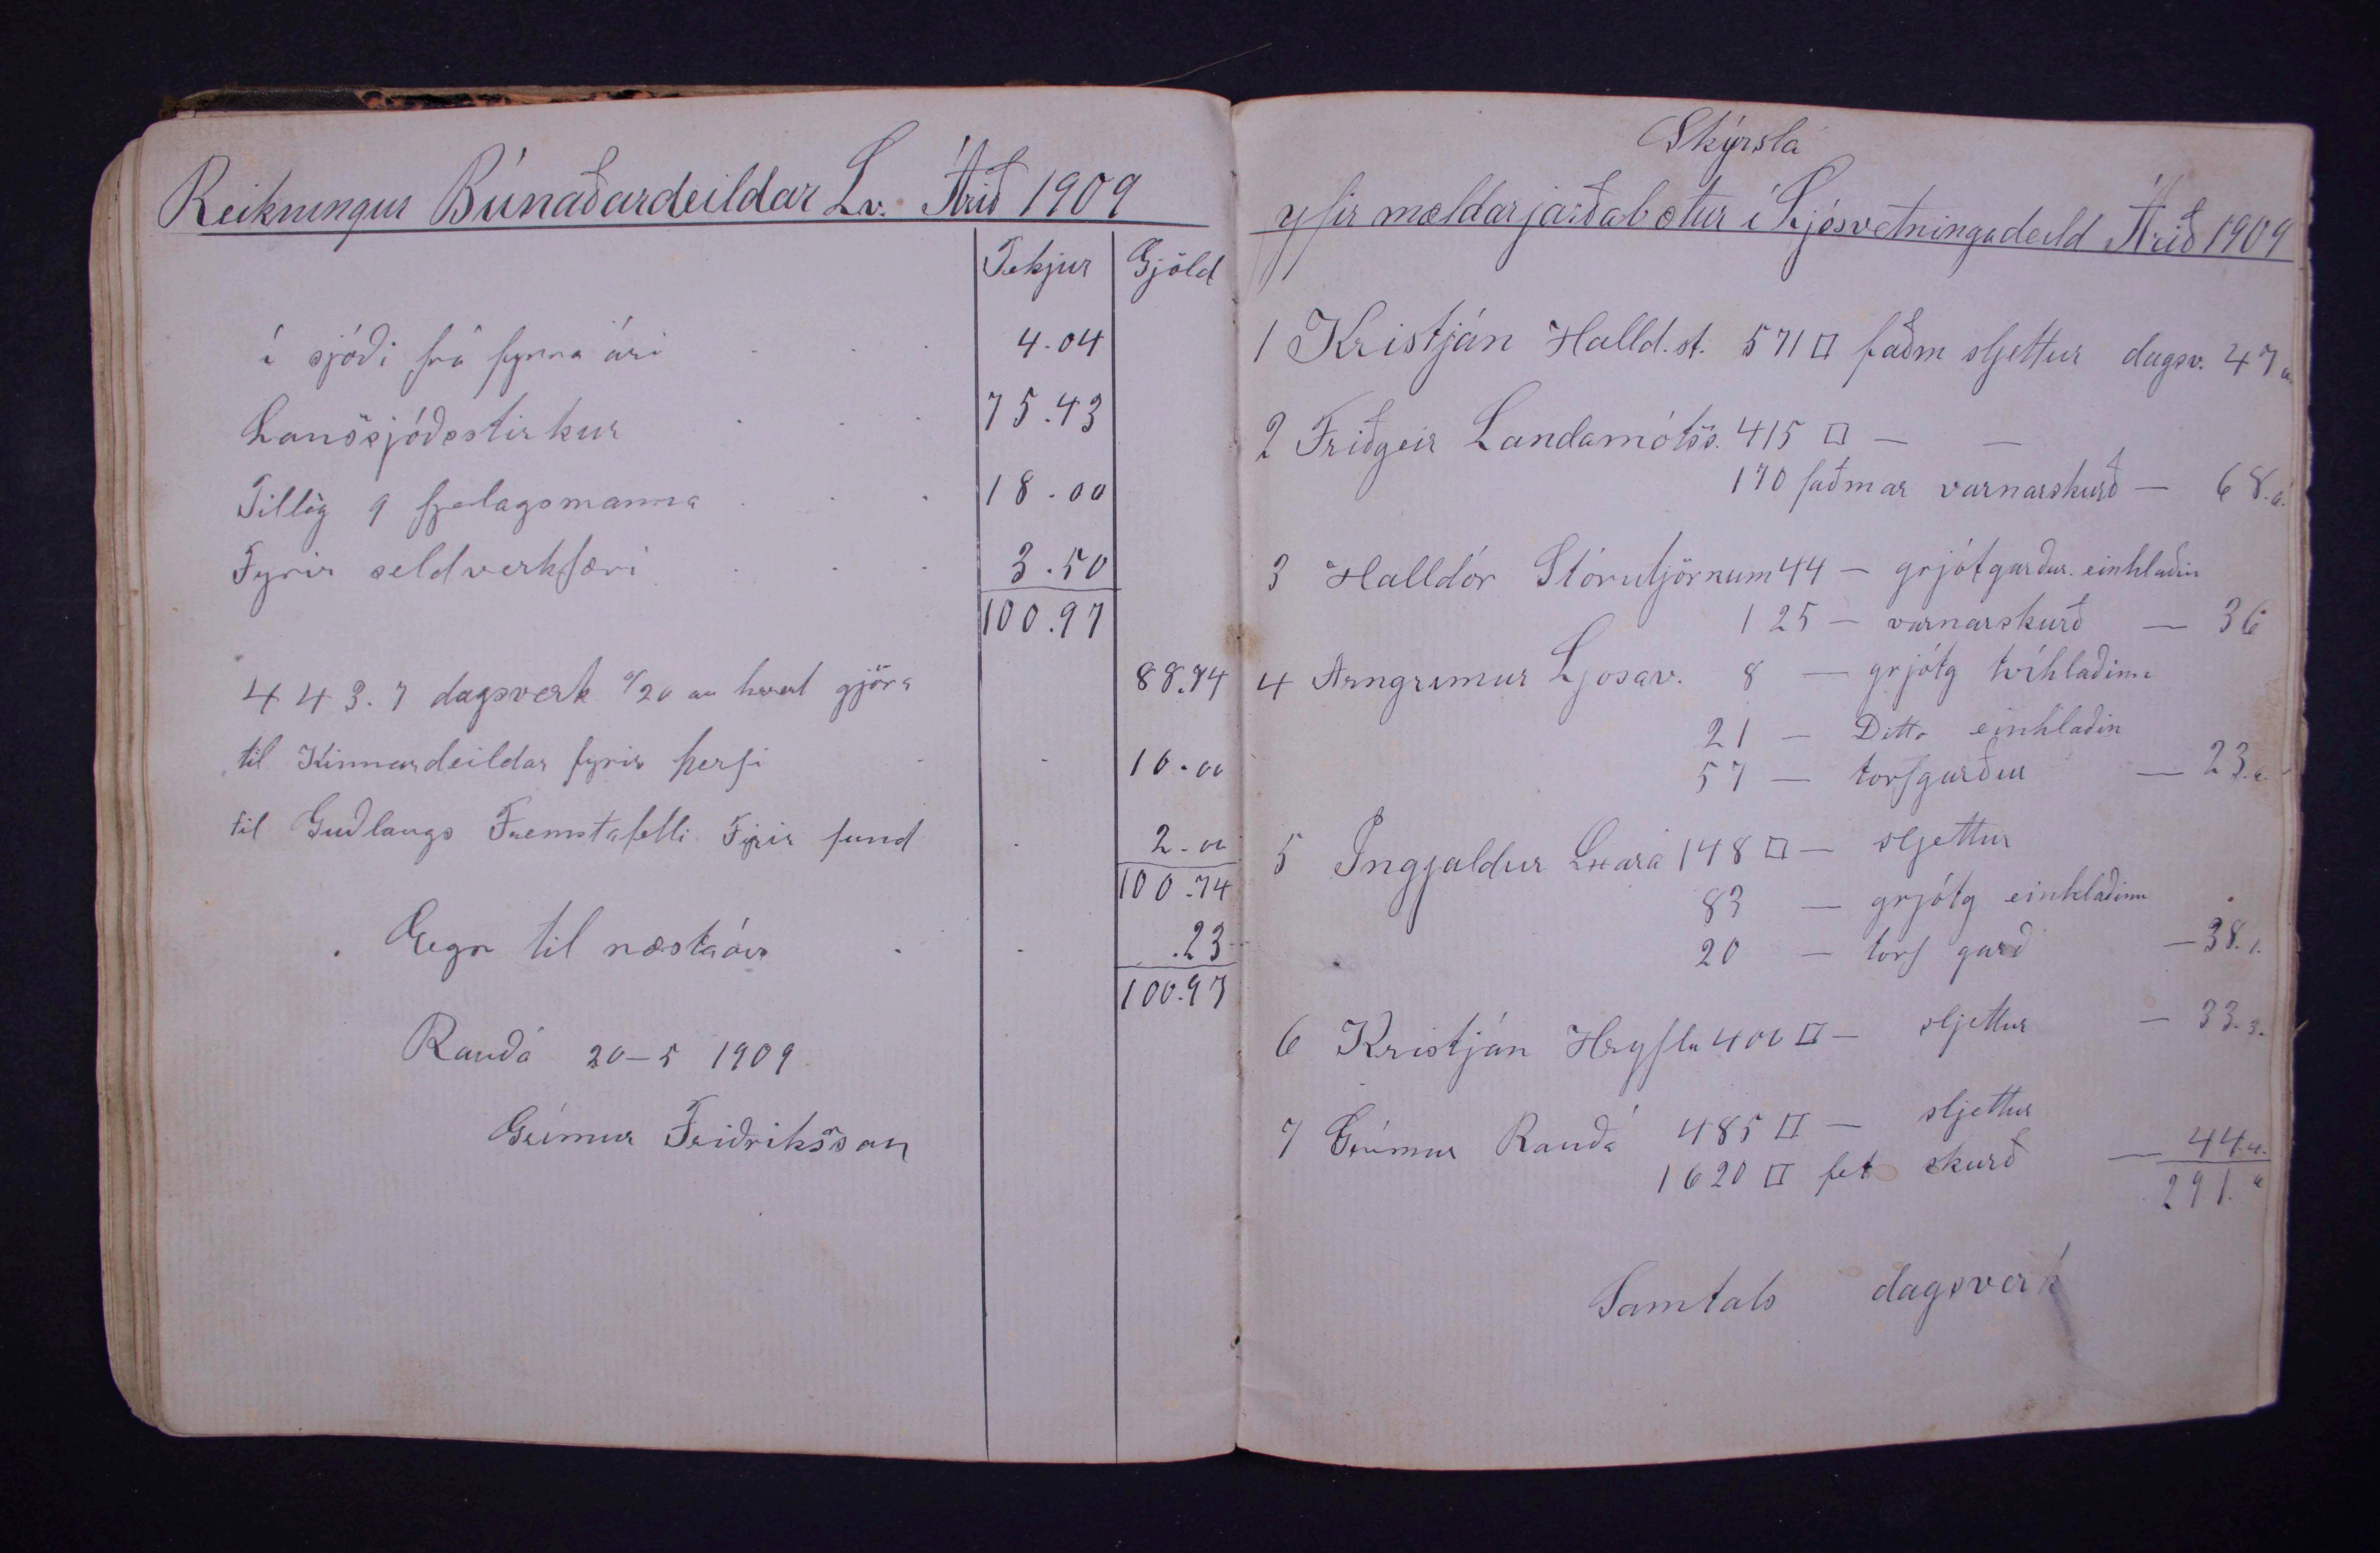 Reikningur Búnaðardeildar Lv. Árið 1909
Tekjur Gjöld
í sjóði frá fyrra ári 4.04
Landssjóðsstirkur 75.43
Tillög 9 fjelagsmanna 18.00
Fyrir seld verkfæri 3.50
100.97
443.7 dagsverk á /20 au hvert gjöra 88.74
til Kinnardeildar fyrir herfi 10.00
til Guðlaugs Fremstafelli Fyrir fund 2.00
100.74
Eign til næsta árs .23
100.97
Rauðá 20-5 1909
Grímur Friðriksson
Skýrsla
yfir mældar jarðabætur í Ljósvetningadeild Árið 1909
1 Kristján Halld.st. 571 □ faðm sljettur dagsv. 47
2 Friðgeir Landamótss. 415 □ — —
170 faðmar varnarskurð — 68.
3 Halldór Stórutjörnum 44 — grjótgarður einhlaðin
125 — varnarskurð — 36
4 Arngrimur Ljosav. 8 — grjótg tvíhlaðinn
21 — Ditto einhlaðin
57 — torfgarður — 23.
5 Ingjaldur 148 □ — sljettur
83 — grjótg einhlaðinn
20 — torf garð — 38.1.
6 Kristján Hryflu 400 □ — sljettur — 33.3.
7 Grímur Rauðá 485 □ — sljettur
1620 □ fet skurð — 44.4.
291.
Samtals dagsverk